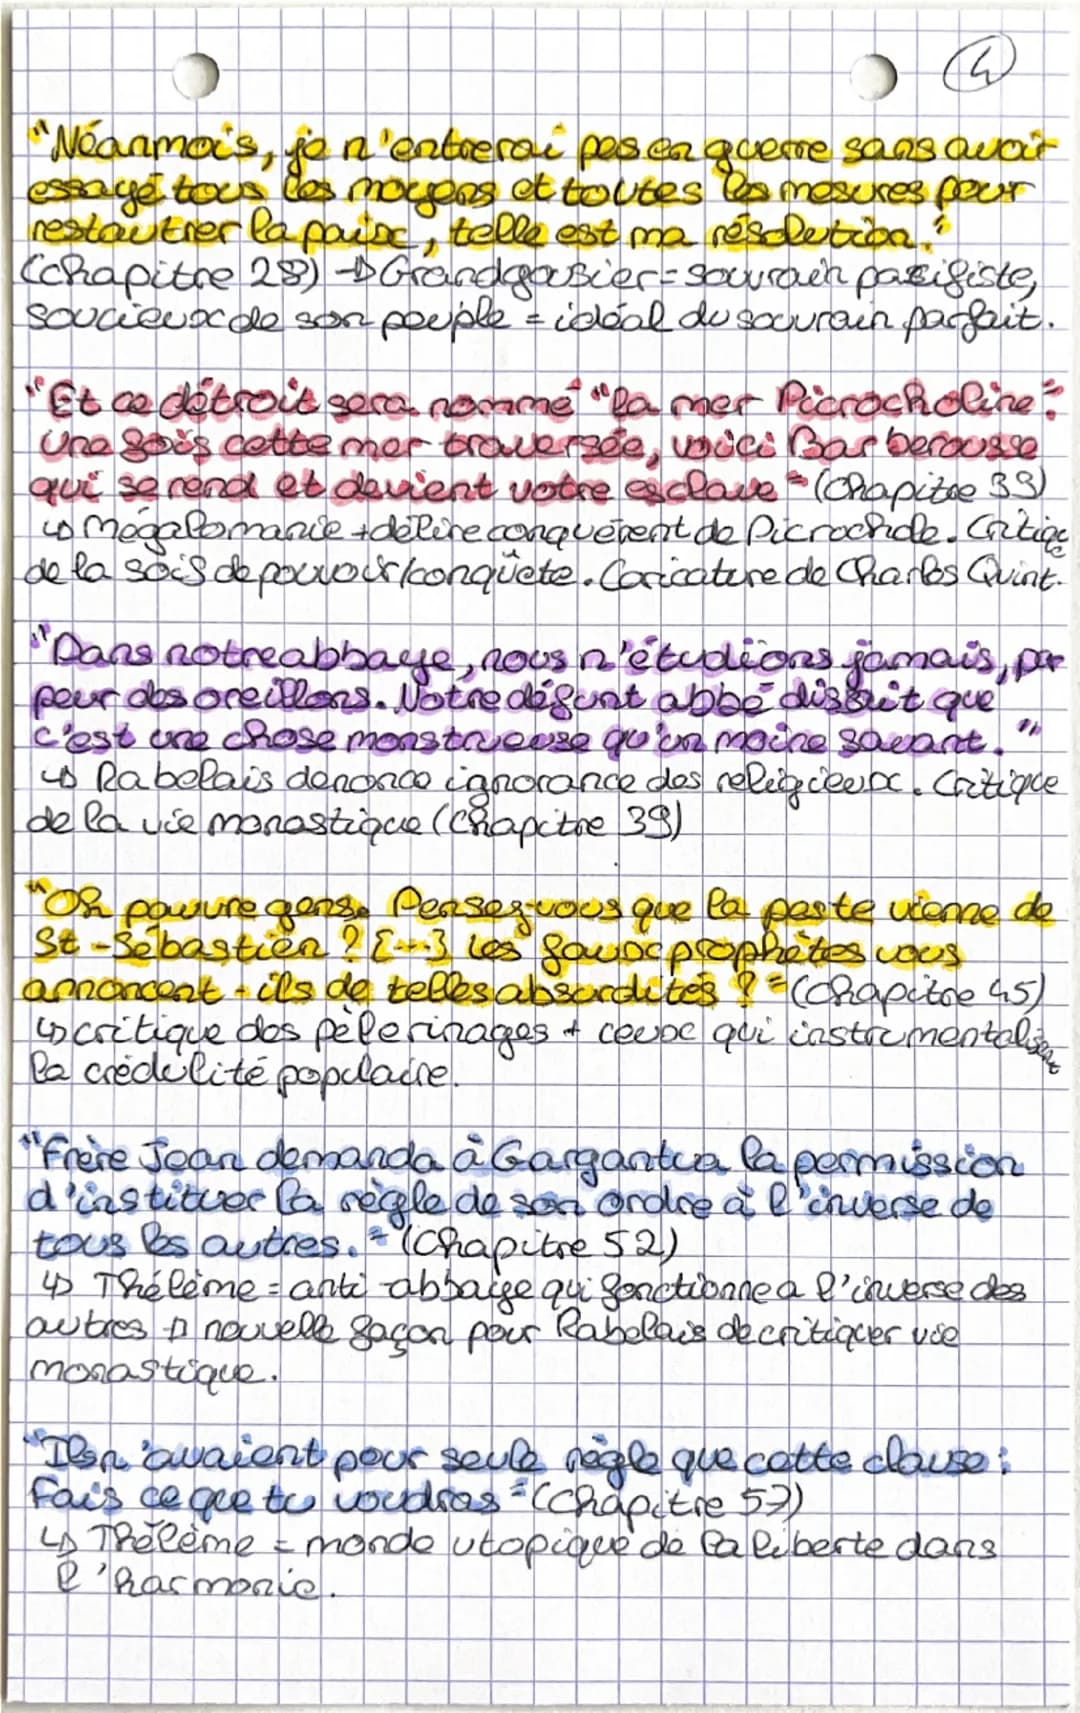 4
"Néanmois, je n'entrerai pas en guerre sans avoir
essayé tous les moyens et toutes les mesures pour
restautrer la paix, telle est ma résolution."
(Chapitre 28) → Grandgousier = souverain pacifiste,
soucieux de son peuple = idéal du souverain parfait.
"Et ce détroit sera nommé "la mer Picrocholine":
une fois cette mer traversée, voici Barberousse
qui se rend et devient votre esclave" (Chapitre 33)
↳ Mégalomanie + délire conquérent de Picrochole. Critique
de la soif de pouvoir/conquête. Caricature de Charles Quint.
"Dans notre abbaye, nous n'étudions jamais, par
peur des oreillons. Notre défunt abbé disait que
c'est une chose monstrueuse qu'un moine savant."
↳ Rabelais dénonce ignorance des religieux. Critique
de la vie monastique (Chapitre 39)
"Oh pauvre gens. Pensez-vous que la peste vienne de
St-Sébastien ? [...] Les faux prophètes vous
annoncent-ils de telles absurdités ?" (Chapitre 45)
↳ critique des pèlerinages + ceux qui instrumentalisent
la crédulité populaire.
"Frère Jean demanda à Gargantua la permission
d'instituer la règle de son ordre à l'inverse de
tous les autres." (Chapitre 52)
↳ Thélème = anti-abbaye qui fonctionne a l'inverse des
autres → nouvelle façon pour Rabelais de critiquer vie
monastique.
"Ils n'avaient pour seule règle que cette clause :
Fais ce que tu voudras" (Chapitre 57)
↳ Thélème = monde utopique de la liberte dans
l'harmonie.